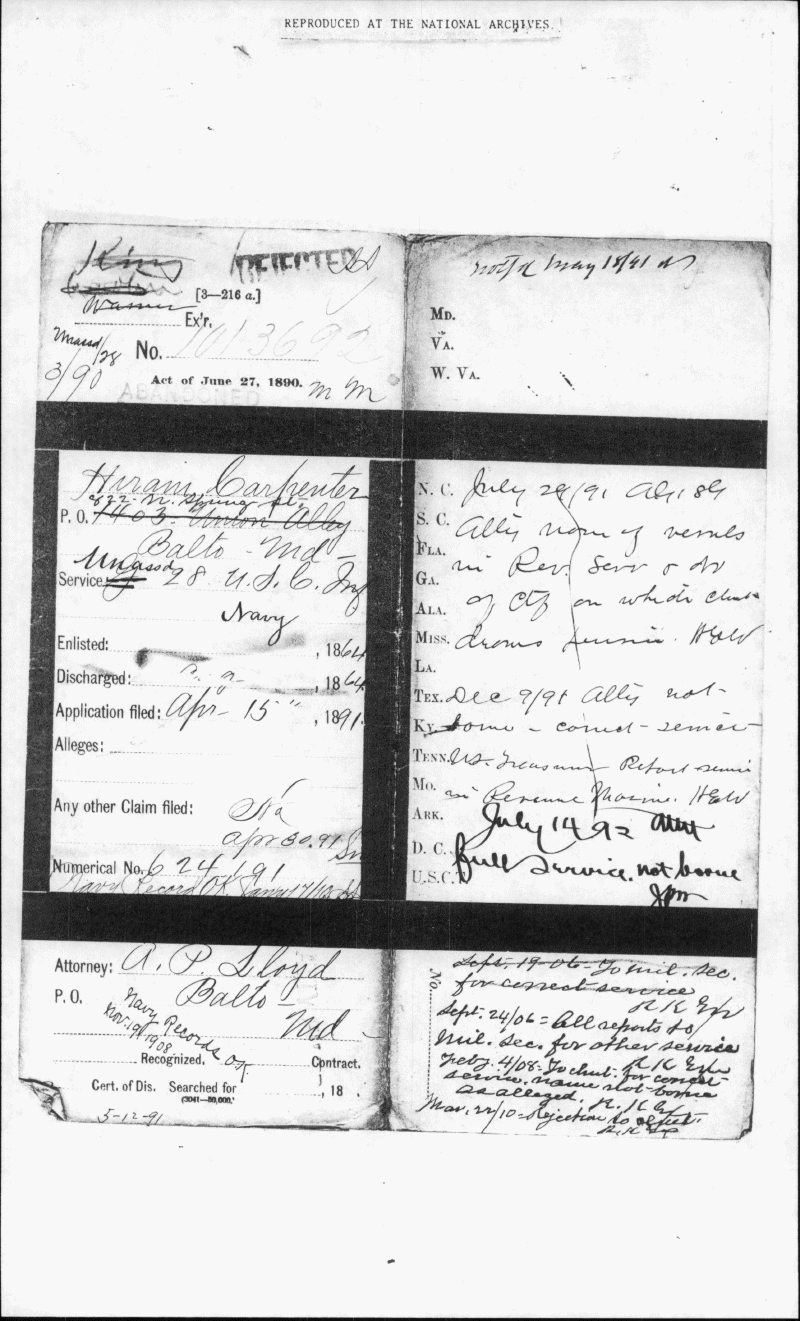 REPRODUCED AT THE NATIONAL ARCHIVES.
King
REJECTED
Warner
[3—216 a.]
Ex'r.
No. 1013692
3/90
Act of June 27, 1890.
ABANDONED
Hiram Carpenter
822 N. Spring St.
P. O. 1403 Union Alley
Balto Md —
Unassd
Service: 28 U. S. C. Inf
Navy
Enlisted: , 1864
Discharged: , 1864
Application filed: Apr 15 , 1891.
Alleges:
Any other Claim filed: No
Apr 30. 91
Numerical No. 624,191
Navy Record OK
Attorney: A. P. Lloyd
P. O. Balto
Md —
Navy Records OK
Nov. 19, 1908
Recognized. Contract.
Cert. of Dis. Searched for , 18 .
(3041—50,000.)
5-12-91
May 18/91
MD.
VA.
W. VA.
N. C. July 29/91
S. C. Atty name of vessels
FLA. in Rev. Serv
GA.
ALA. of Ctf on which clmt
MISS. draws pension.
LA.
TEX. Dec 9/91 Atty not
KY. borne — correct service
TENN. US. Treasurer Report service
MO. in Revenue Marine.
ARK. July 14 92
D. C. full service. not borne
U.S.C.T.
No.
Sept. 19-06- To mil. sec.
for correct service
Sept. 24/06 = All reports to
mil. sec. for other service
Feby. 4/08- To clmt. for correct
service. name not borne
as alleged.
Mar. 22/10 = Rejection